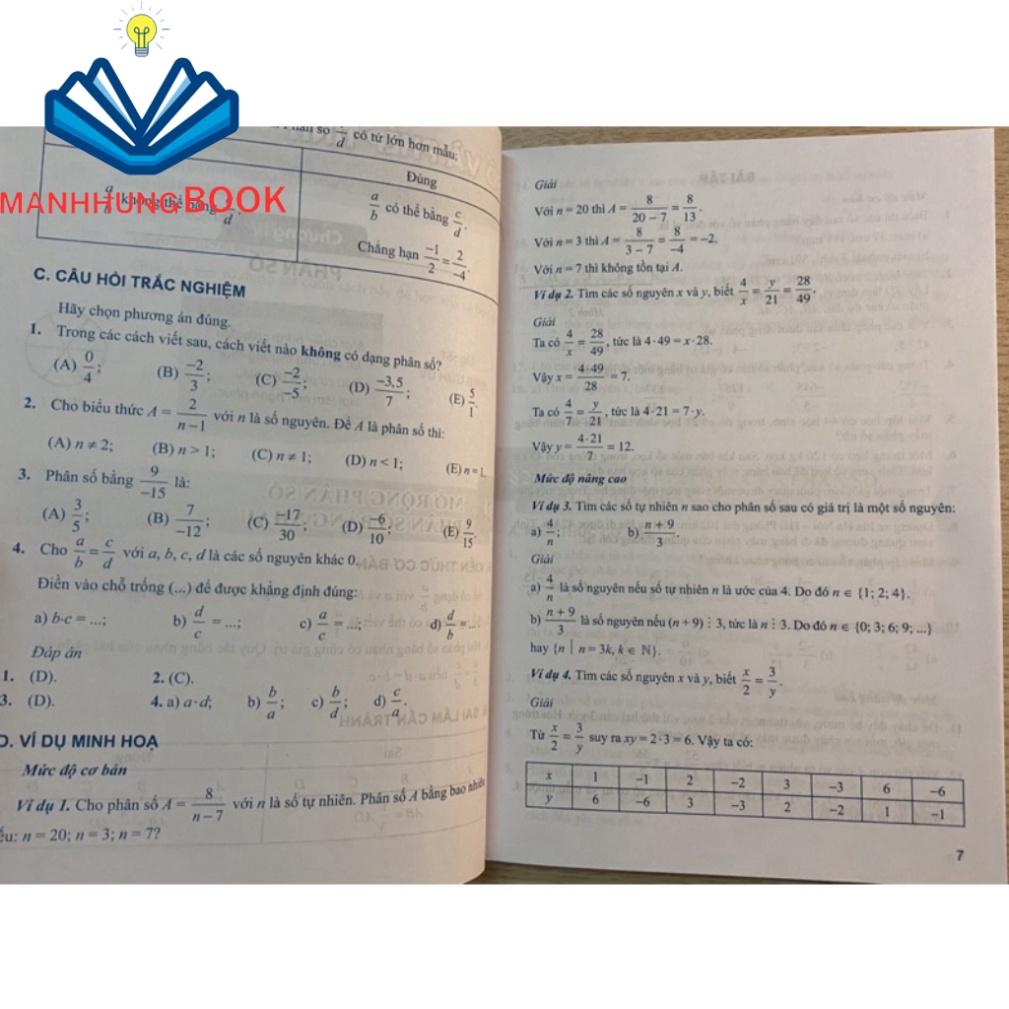 MANHHUNGBOOK
có tử lớn hơn mẫu;
Đúng
a/b có thể bằng c/d.
Chẳng hạn -1/2 = 2/-4.
C. CÂU HỎI TRẮC NGHIỆM
Hãy chọn phương án đúng.
1. Trong các cách viết sau, cách viết nào không có dạng phân số?
(A) 0/4; (B) -2/3; (C) -2/-5; (D) -3,5/7; (E) 5/1.
2. Cho biểu thức A = 2/(n-1) với n là số nguyên. Để A là phân số thì:
(A) n ≠ 2; (B) n > 1; (C) n ≠ 1; (D) n < 1; (E) n = 1.
3. Phân số bằng 9/-15 là:
(A) 3/5; (B) 7/-12; (C) -17/30; (D) -6/10; (E) 9/15.
4. Cho a/b = c/d với a, b, c, d là các số nguyên khác 0.
Điền vào chỗ trống (...) để được khẳng định đúng:
a) b·c = ...; b) d/c = ...; c) a/c = ...; d) d/b = ...
Đáp án
1. (D). 2. (C).
3. (D). 4. a) a·d; b) b/a; c) b/d; d) c/a.
D. VÍ DỤ MINH HOẠ
Mức độ cơ bản
Ví dụ 1. Cho phân số A = 8/(n-7) với n là số tự nhiên. Phân số A bằng bao nhiêu
nếu: n = 20; n = 3; n = 7?
Giải
Với n = 20 thì A = 8/(20-7) = 8/13.
Với n = 3 thì A = 8/(3-7) = 8/-4 = -2.
Với n = 7 thì không tồn tại A.
Ví dụ 2. Tìm các số nguyên x và y, biết 4/x = y/21 = 28/49.
Giải
Ta có 4/x = 28/49, tức là 4·49 = x·28.
Vậy x = 4·49/28 = 7.
Ta có 4/7 = y/21, tức là 4·21 = 7·y.
Vậy y = 4·21/7 = 12.
Mức độ nâng cao
Ví dụ 3. Tìm các số tự nhiên n sao cho phân số sau có giá trị là một số nguyên:
a) 4/n; b) (n+9)/3.
Giải
a) 4/n là số nguyên nếu số tự nhiên n là ước của 4. Do đó n ∈ {1; 2; 4}.
b) (n+9)/3 là số nguyên nếu (n + 9) ⋮ 3, tức là n ⋮ 3. Do đó n ∈ {0; 3; 6; 9; ...}
hay {n | n = 3k, k ∈ ℕ}.
Ví dụ 4. Tìm các số nguyên x và y, biết x/2 = 3/y.
Giải
Từ x/2 = 3/y suy ra xy = 2·3 = 6. Vậy ta có:
x 1 -1 2 -2 3 -3 6 -6
y 6 -6 3 -3 2 -2 1 -1
7